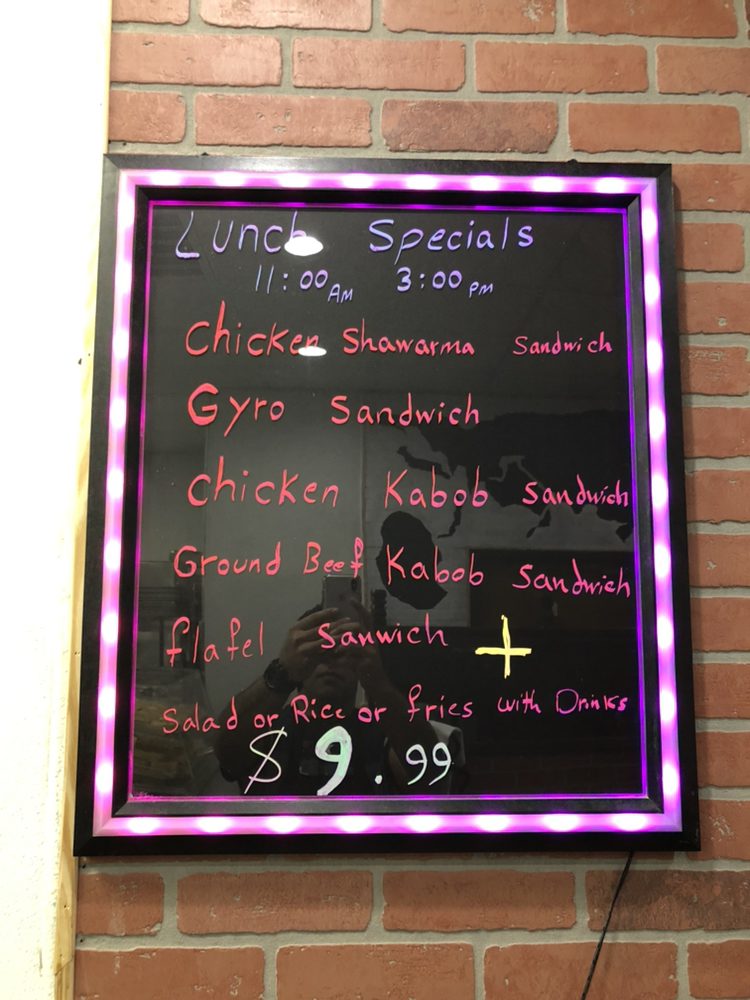 Lunch Specials
11:00 AM 3:00 PM
Chicken Shawarma Sandwich
Gyro Sandwich
Chicken Kabob Sandwich
Ground Beef Kabob Sandwich
flafel Sanwich +
Salad or Rice or fries with Drinks
$9.99